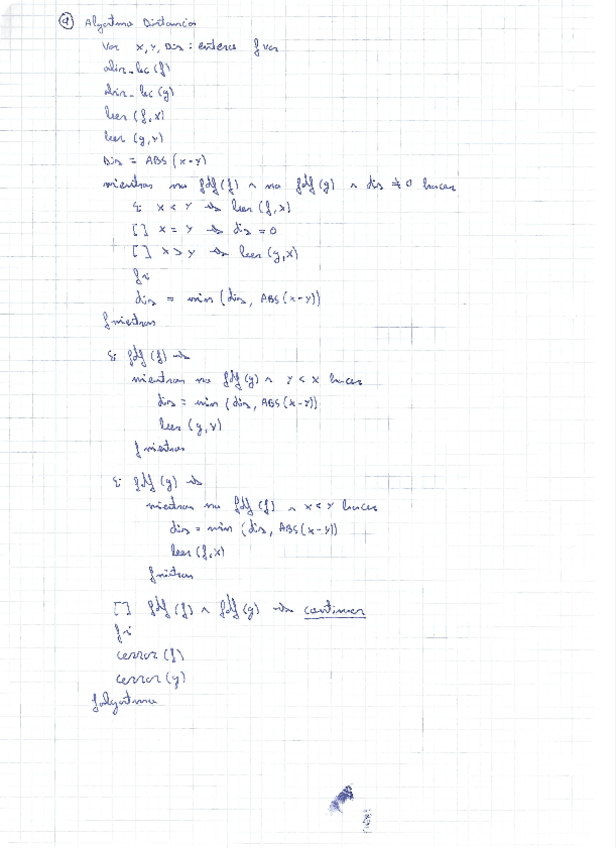 ④ Algoritmo Distancias
Var x, y, Dis : enteros fvar
abrir_lec (f)
abrir_lec (g)
leer (f,x)
leer (g,y)
Dis = ABS (x-y)
mientras no fdf(f) ^ no fdf(g) ^ dis ≠ 0 hacer
Si x < y → leer (f,x)
[] x = y → dis = 0
[] x > y → leer (g,x)
fsi
dis = min (dis, ABS(x-y))
fmientras
Si fdf (f) →
mientras no fdf(g) ^ y < x hacer
dis = min (dis, ABS(x-y))
leer (g,y)
fmientras
Si fdf (g) →
mientras no fdf (f) ^ x < y hacer
dis = min (dis, ABS(x-y))
leer (f,x)
fmientras
[] fdf (f) ^ fdf (g) → continuar
fsi
cerrar (f)
cerrar (g)
falgoritmo